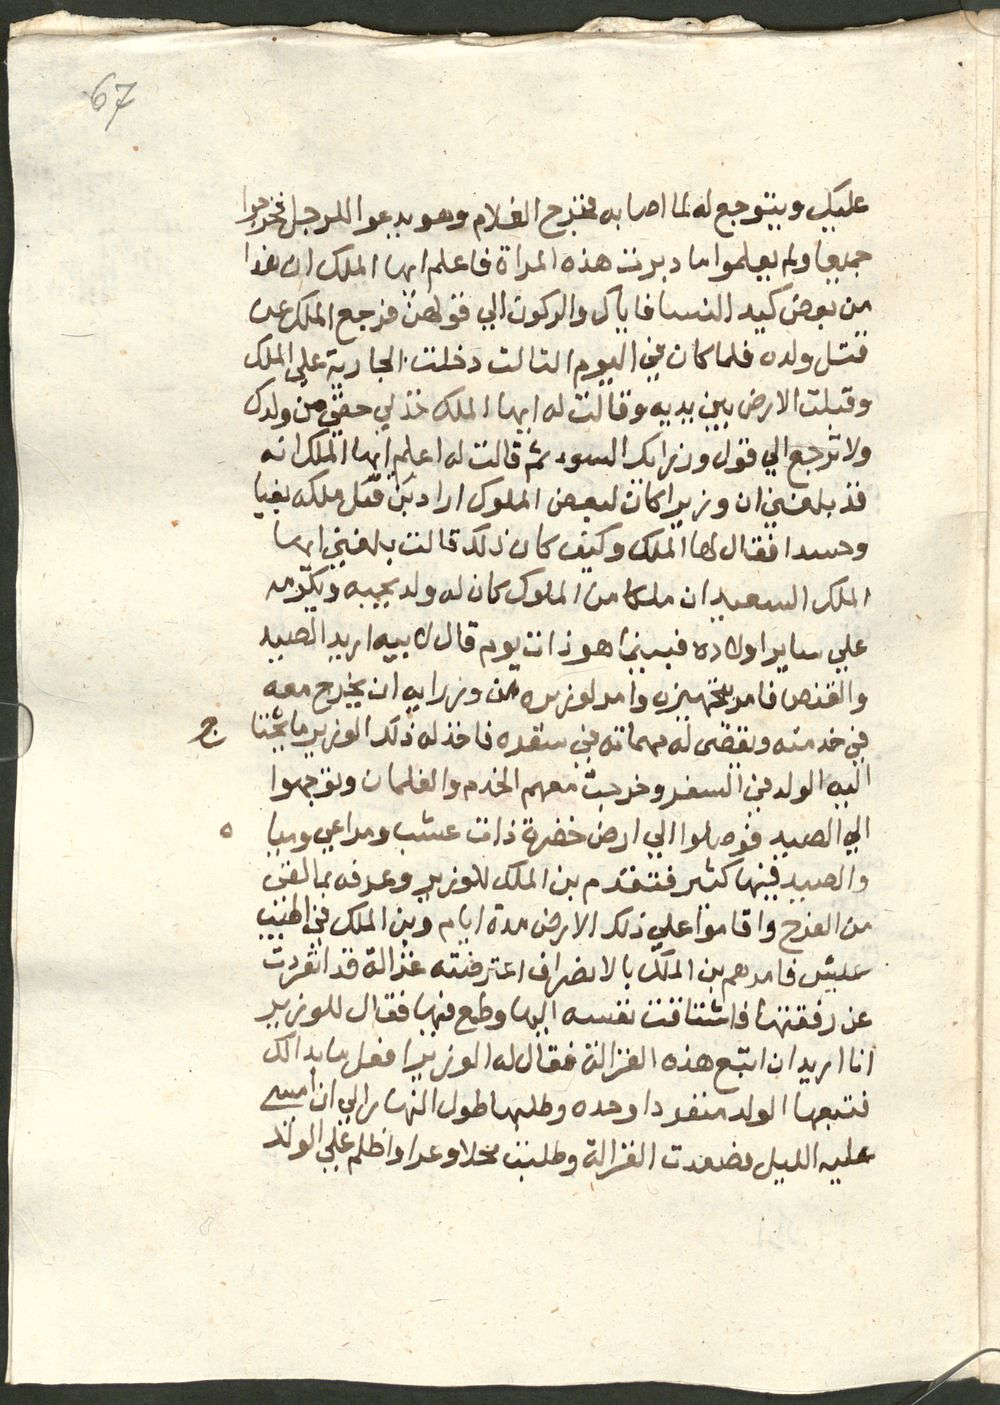 67
عليك ويتوجع له لما اصابه فخرج الغلام وهو يدعوا للرجل فخرجوا
جميعا ولم يعلموا ما دبرت هذه المراة فاعلم ايها الملك ان هذا
من بعض كيد النسا فاياك والركون الي قولهن فرجع الملك عن
قتل ولده فلما كان في اليوم التالت دخلت الجارية علي الملك
وقبلت الارض بين يديه وقالت له ايها الملك خذ لي حقي من ولدك
ولا ترجع الي قول وزرايك السوء ثم قالت له اعلم ايها الملك انه
قد بلغني ان وزيرا كان لبعض الملوك اراد بن قتل ملكه بغيا
وحسدا فقال لها الملك وكيف كان ذلك قالت بلغني ايها
الملك السعيد ان ملكا من الملوك كان له ولد يحبه ويكرمه
علي ساير اولاده فبينما هو ذات يوم قال لابيه اريد الصيد
والقنص فامر بتجهيزه وامر لوزيره من وزرايه ان يخرج معه
في خدمته ويقضي له مهماته في سفره فاخذ له ذلك الوزير ما يحتا ج
اليه الولد في السفر وخرجت معهم الخدم والغلمان وتوجهوا
الي الصيد فوصلوا الي ارض خضرة ذات عشب ومراعي وميا ه
والصيد فيها كثير فتقدم بن الملك للوزير وعرفه بما لقي
من الفرح واقاموا علي ذلك الارض مدة ايام وبن الملك في اطيب
عيش فامرهم بن الملك بالانصراف اعترضته غزالة قد انفردت
عن رفقتها فاشتاقت نفسه اليها وطمع فيها فقال للوزير
انا اريد ان اتبع هذه الغزالة فقال له الوزير افعل ما بدا لك
فتبعها الولد منفردا وحده وطلبها طول النهار الي ان امسي
عليه الليل فصعدت الغزالة وطلبت محلا وعرا واظلم علي الولد